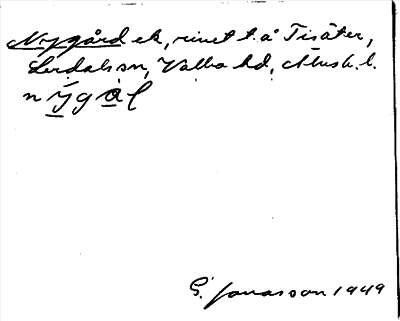 Nygård ek, rivet t. å Tisäter,
Lerdals sn, Valbo hd, Älvsb. l.
n ý g å l
G. Jonasson 1949